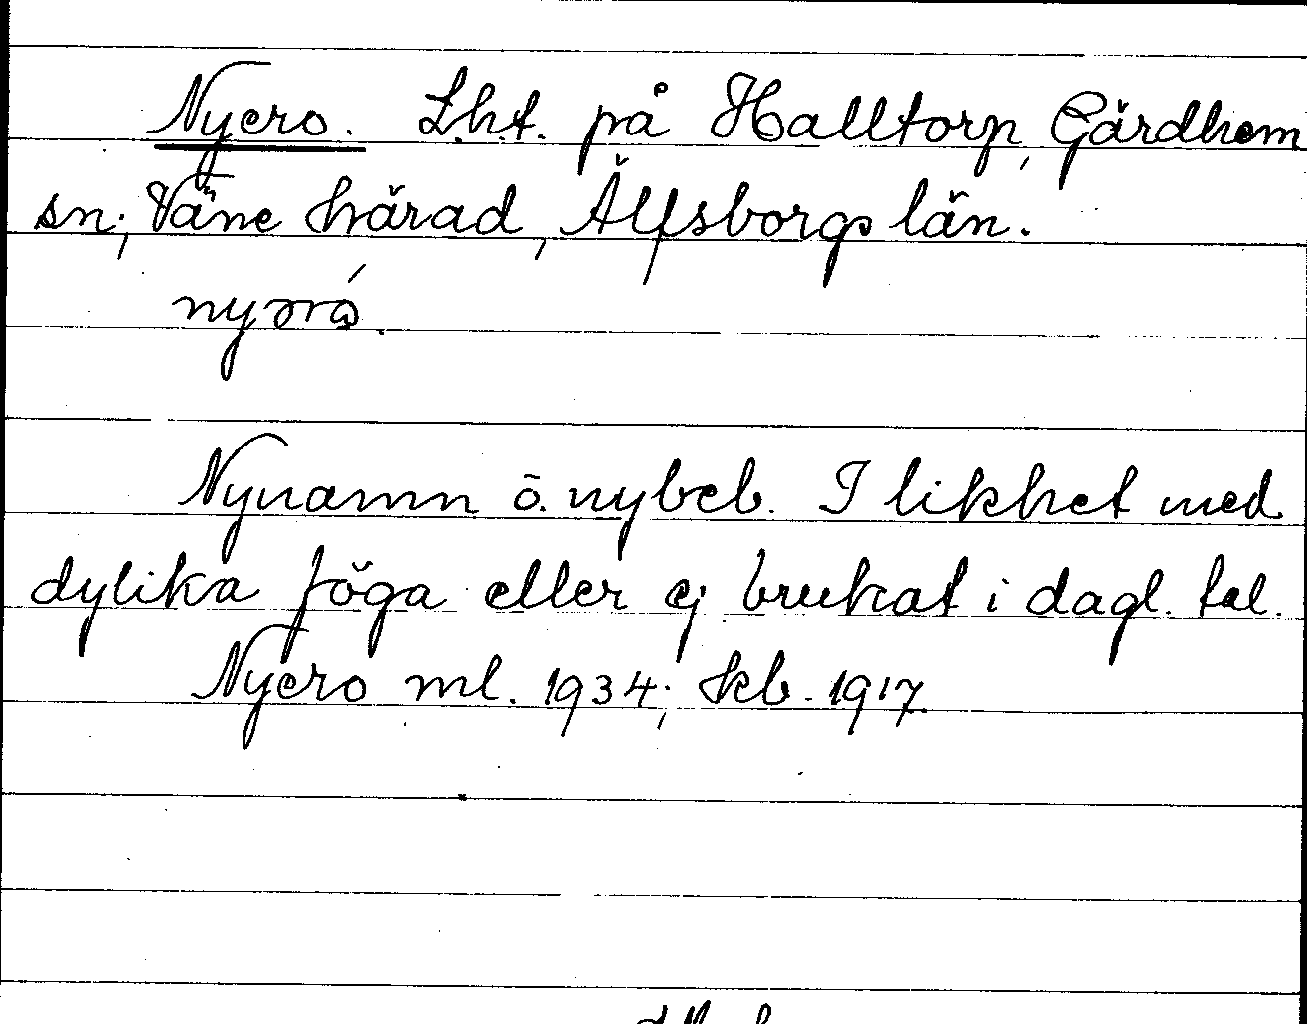 Nyero. Lht. på Halltorp, Gärdhem
sn; Väne härad, Älfsborgs län.
Nynamn o. nybeb. I likhet med
dylika föga eller ej brukat i dagl. tal.
Nyero ml. 1934; skb. 1917.